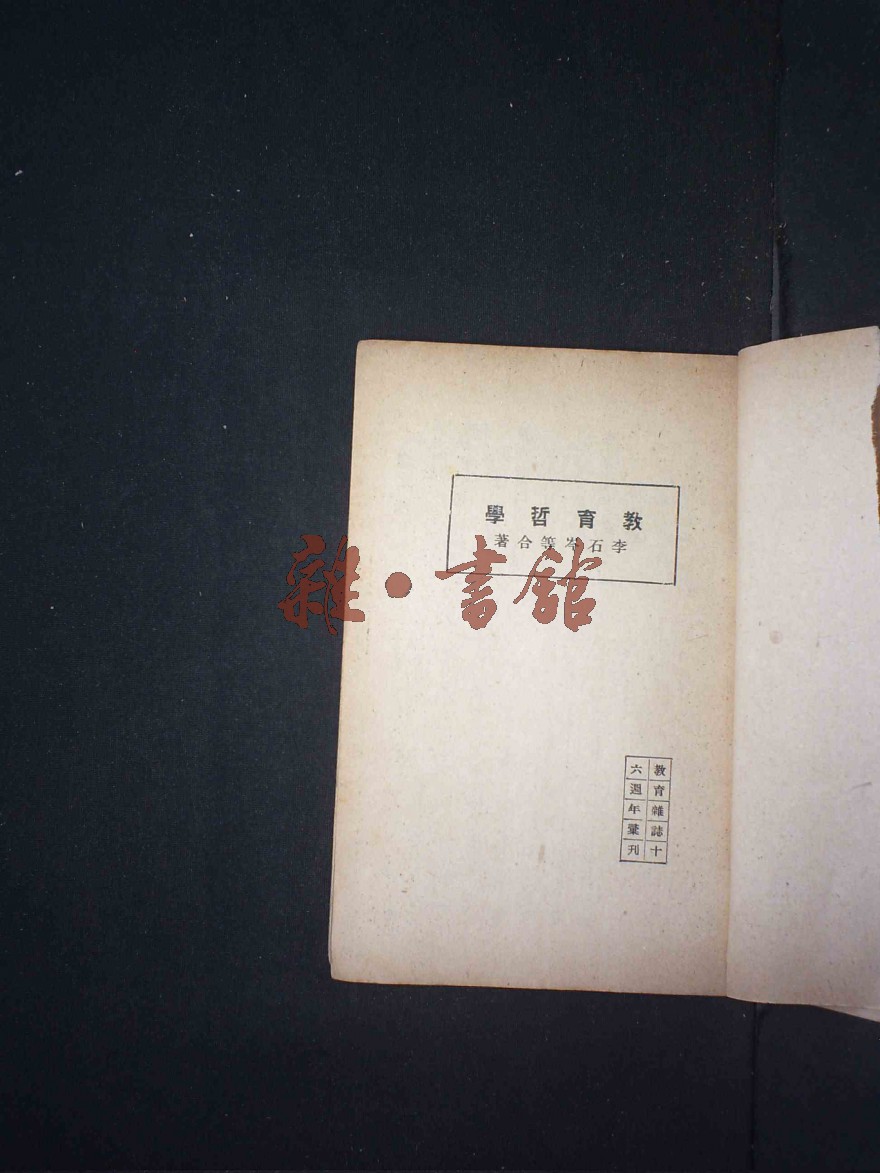 教育哲學
李石岑等合著
雜·書館
教育雜誌十
六週年彙刊